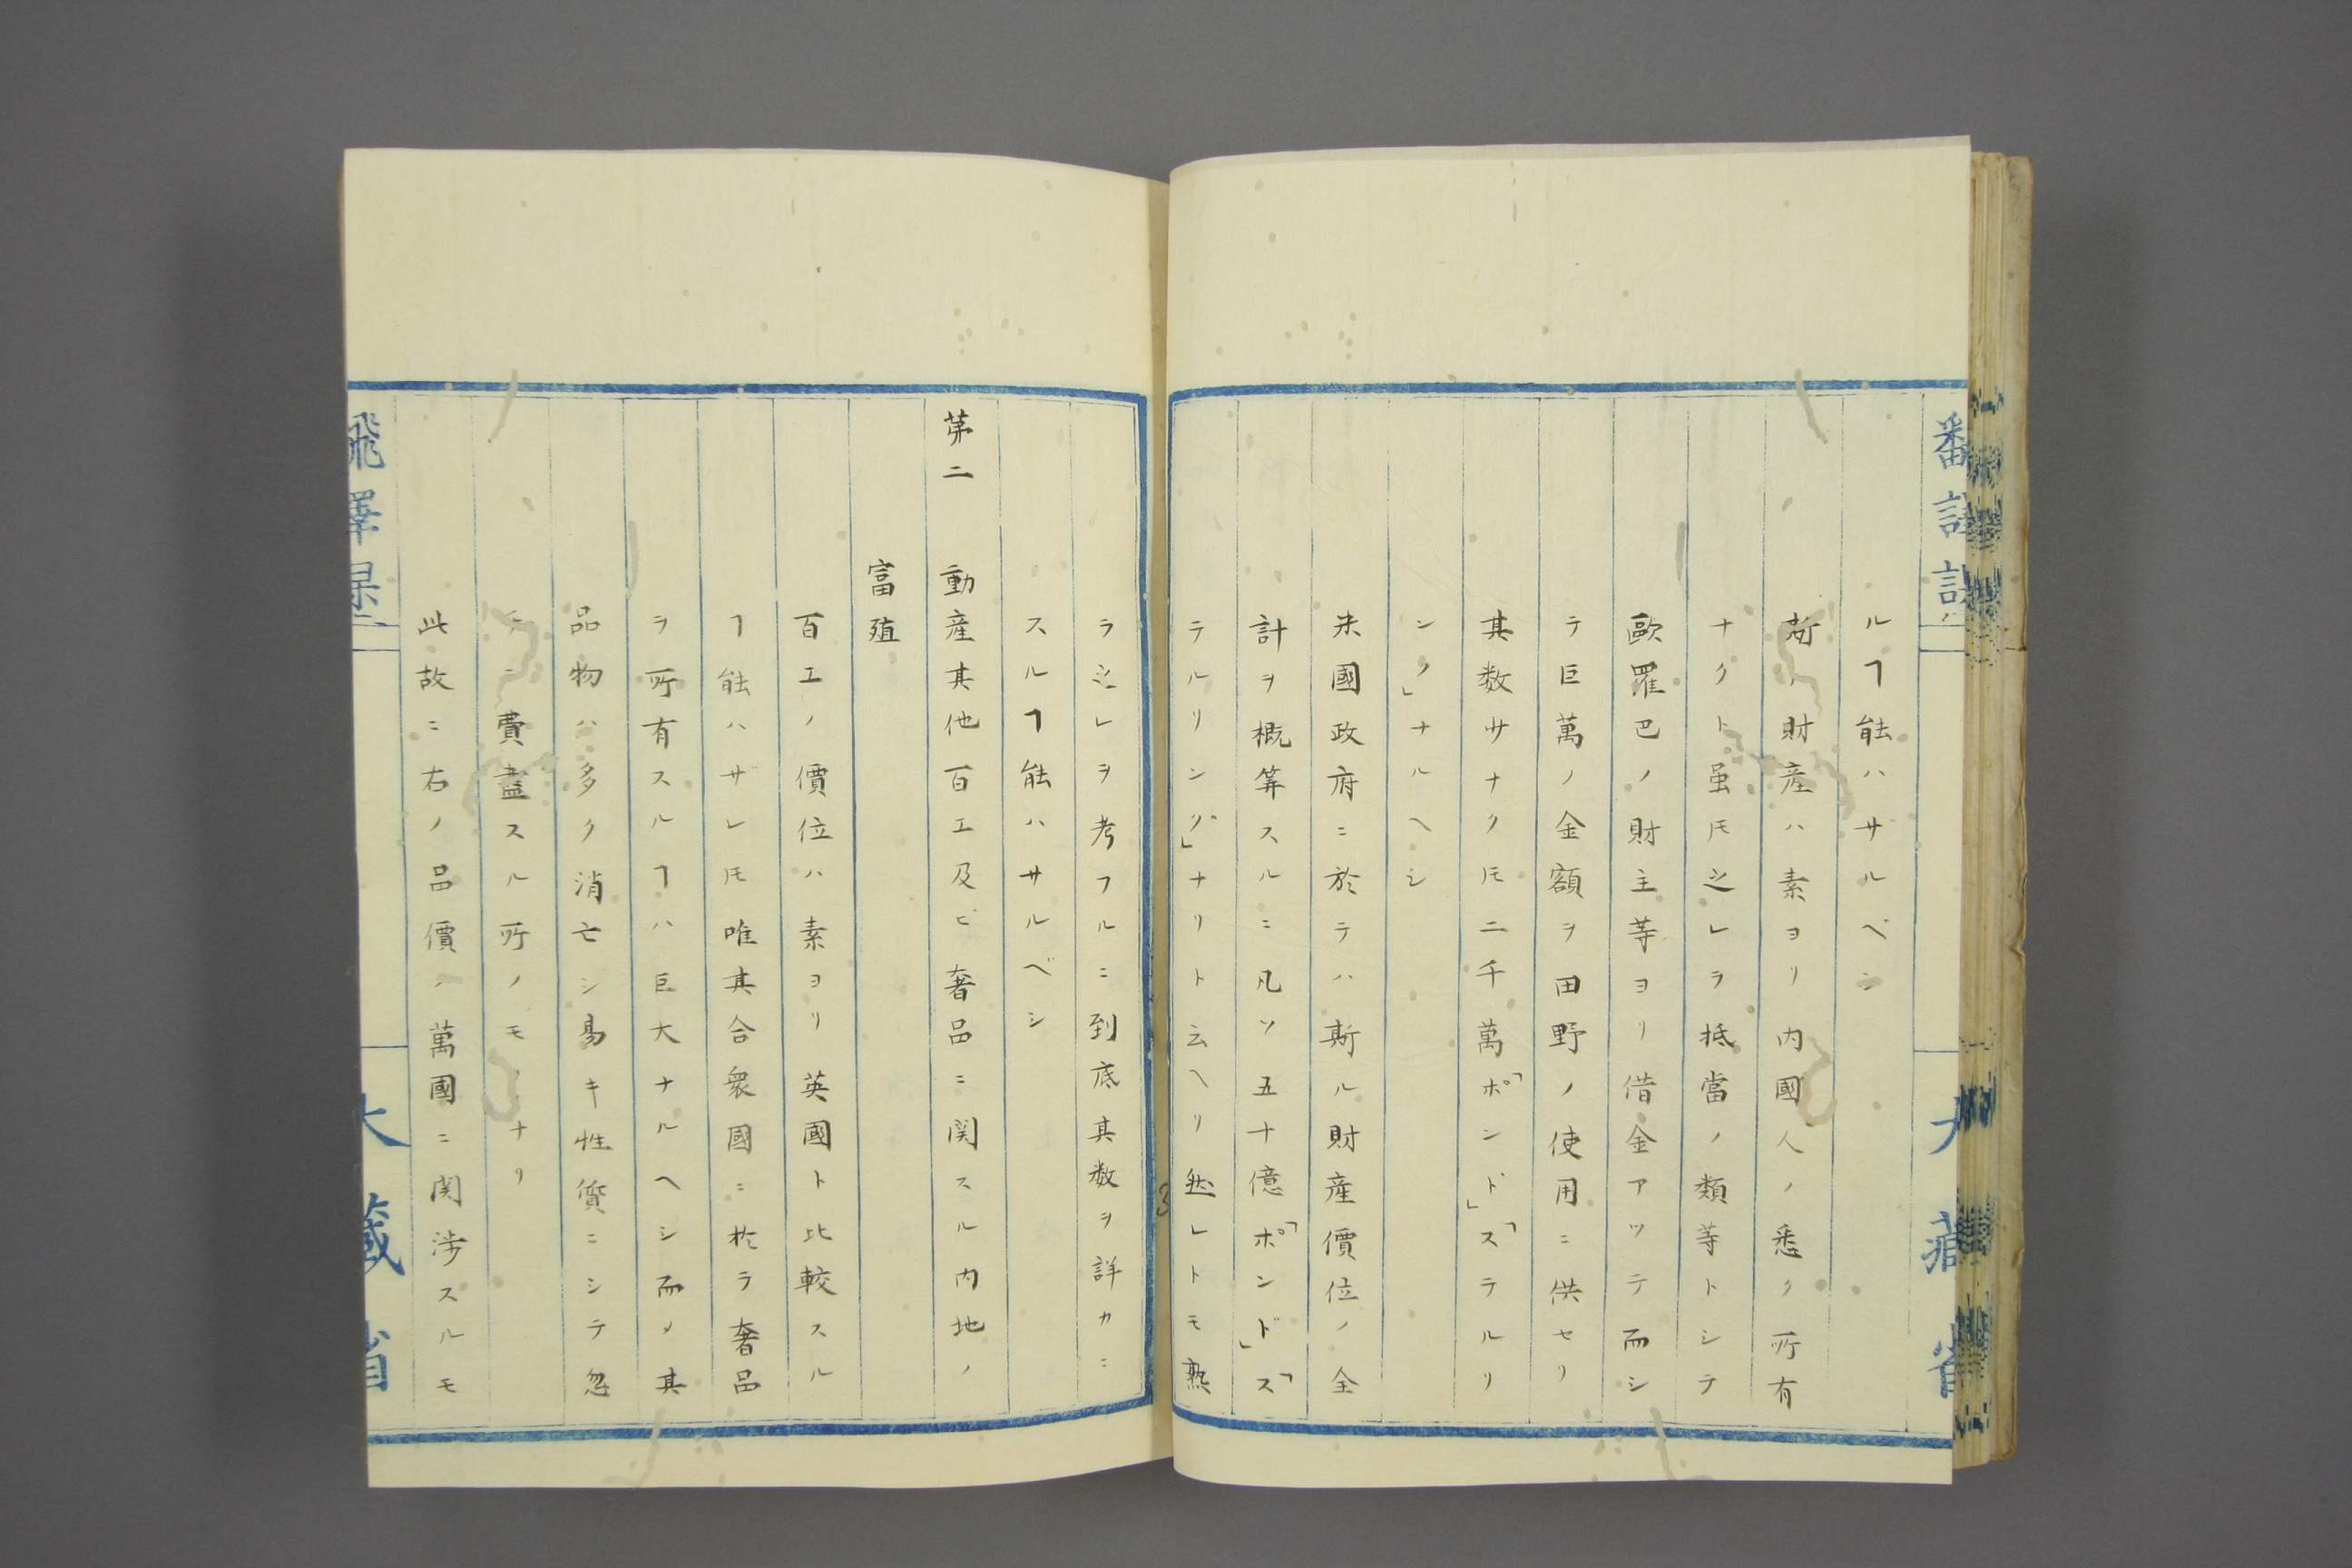 ルヿ能ハザルベシ
斯ノ財産ハ素ヨリ内國人ノ悉ク所有
ナクト虽𪜈之レヲ抵當ノ類等トシテ
歐羅巴ノ財主等ヨリ借金アツテ而シ
テ巨萬ノ金額ヲ田野ノ使用ニ供セリ
其数サナク𪜈二千萬「ポンド」「ステルリ
ンク」ナルヘシ
米國政府ニ於テハ斯ル財産價位ノ全
計ヲ概筭スルニ凡ソ五十億「ポンド」「ス
テルリング」ナリト云ヘリ然レトモ熟
ラ之レヲ考フルニ到底其数ヲ詳カニ
スルヿ能ハサルベシ
第二 動産其他百工及ビ奢品ニ関スル内地ノ
富殖
百工ノ價位ハ素ヨリ英國ト比較スル
ヿ能ハザレ𪜈唯其合衆國ニ於ラ奢品
ヲ所有スルヿハ巨大ナルヘシ而〆其
品物ハ多ク消亡シ易キ性質ニシテ忽
チニ費盡スル所ノモノナリ
此故ニ右ノ品價ハ萬國ニ関渉スルモ
大藏省